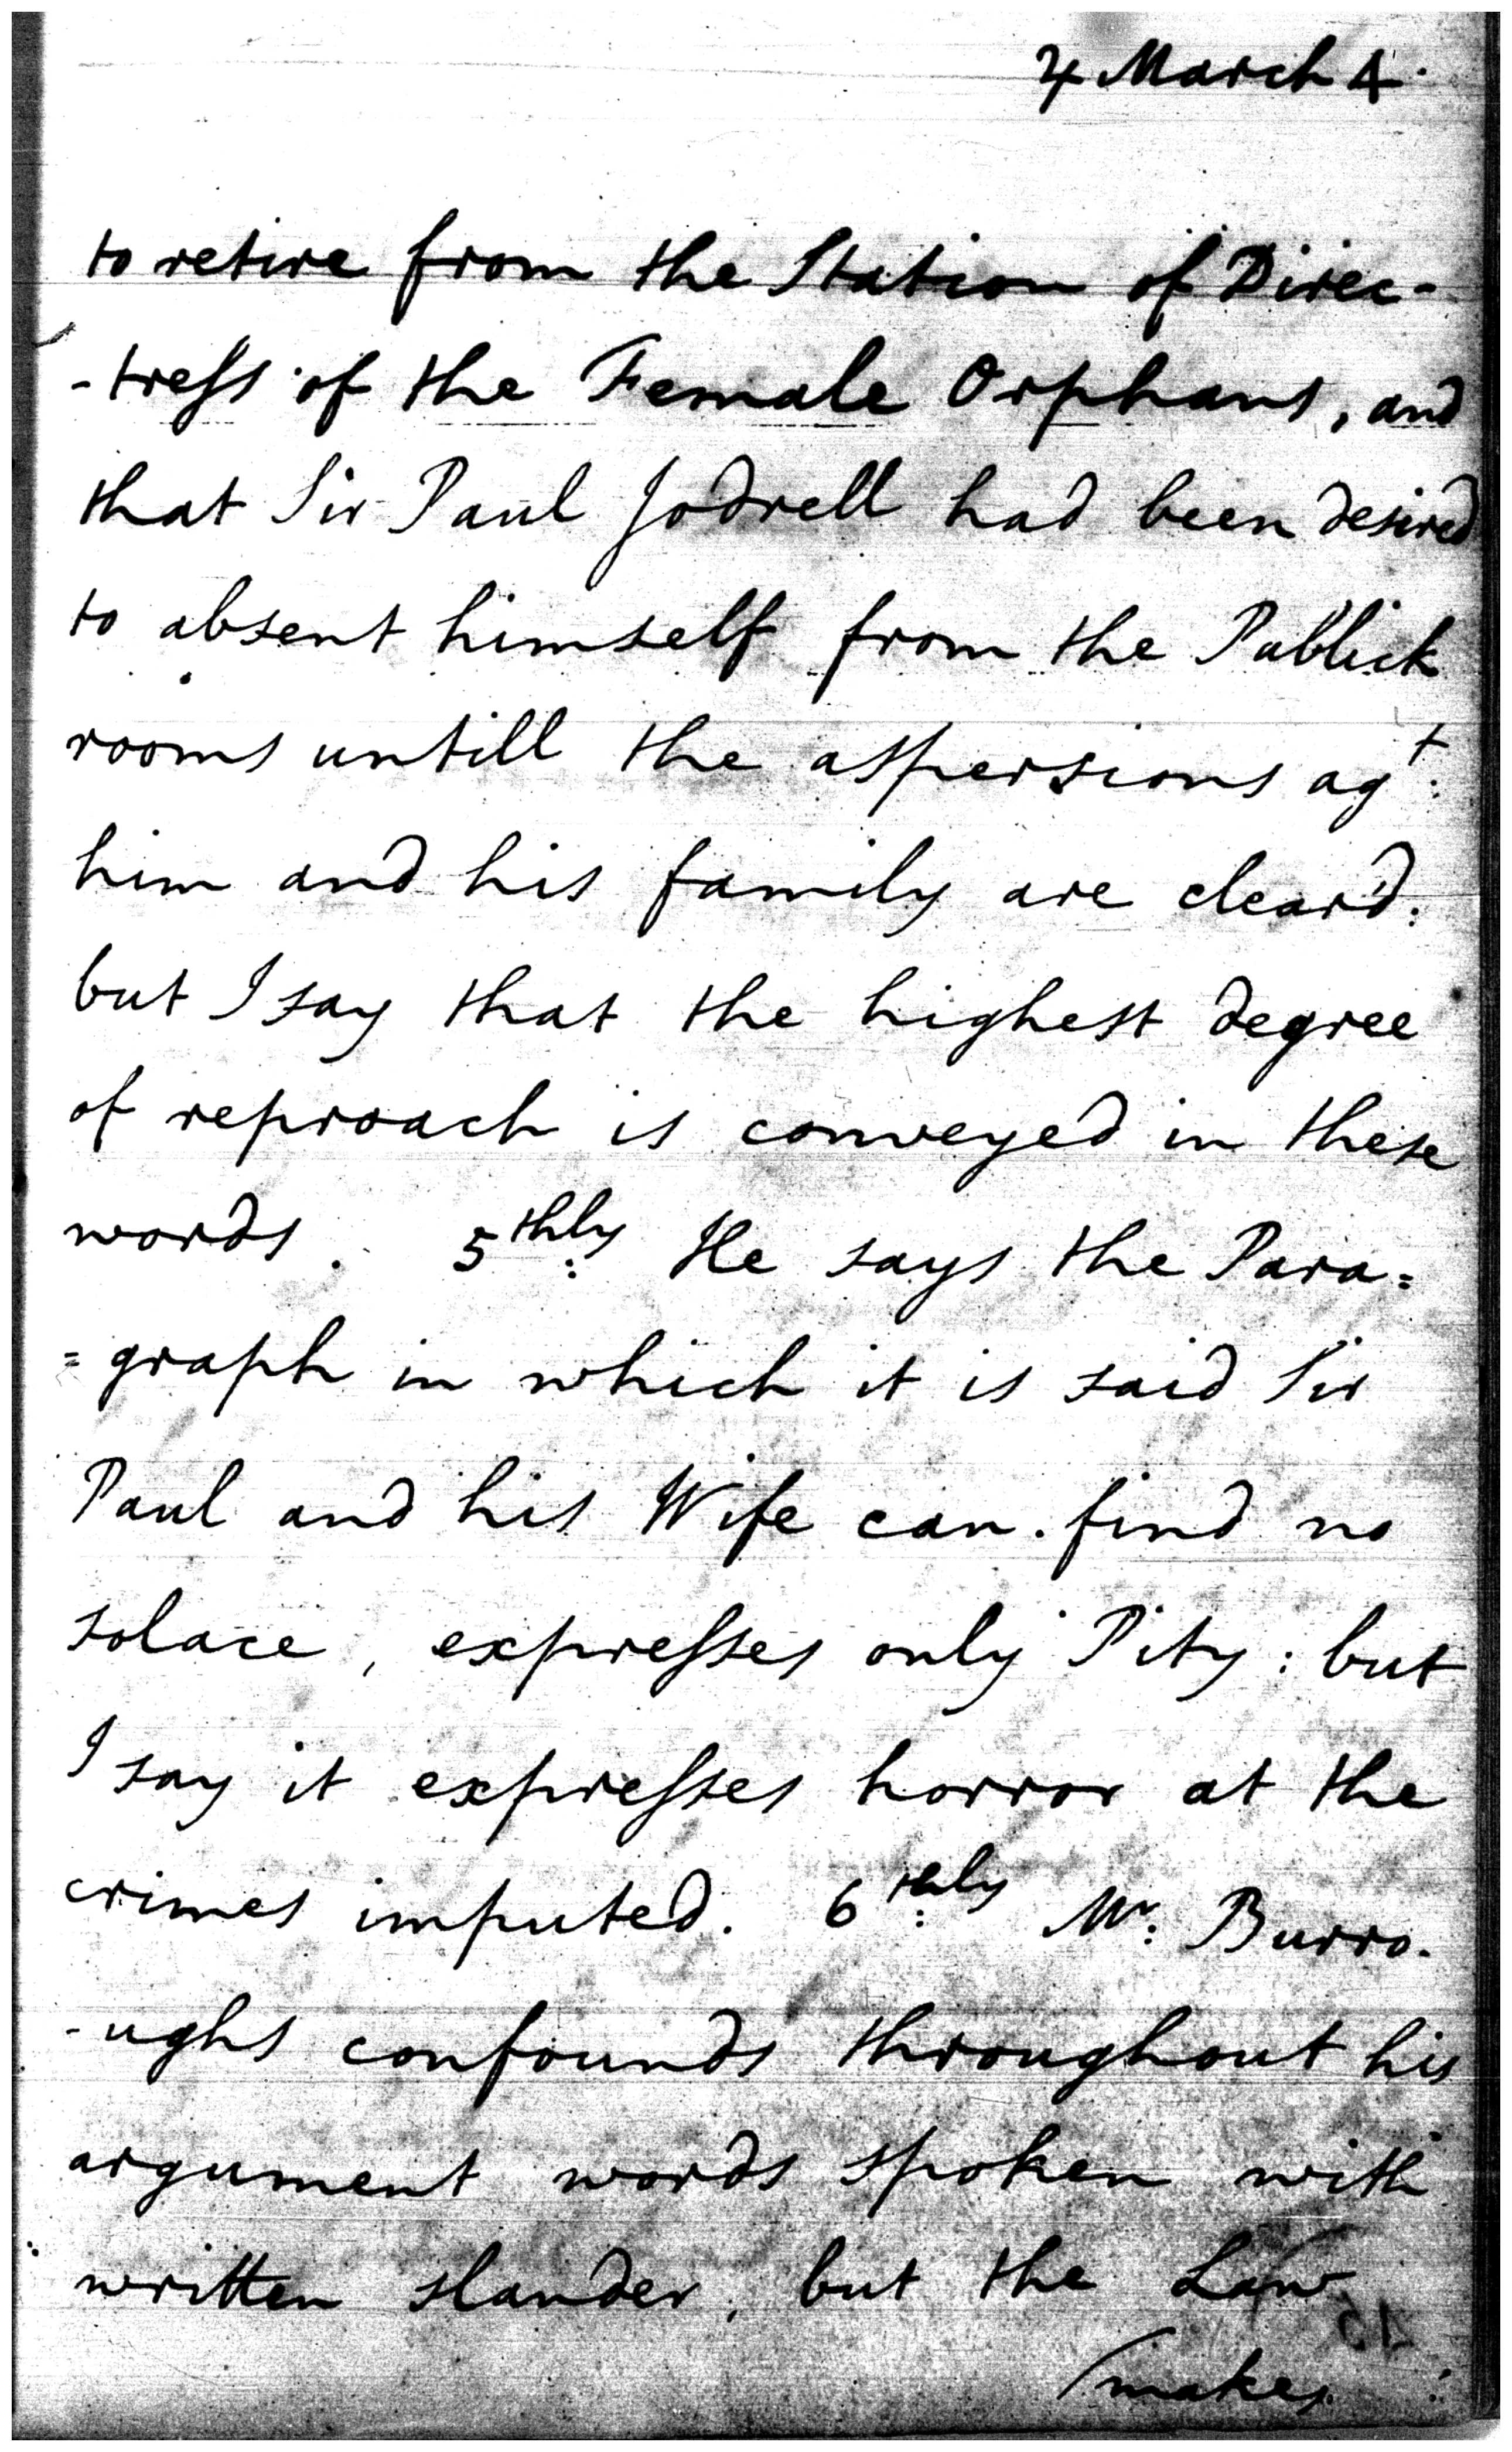 ♃ March 4.
to retire from the Station of Direc-
-treſs of the Female Orphans, and
that Sir Paul Jodrell had been desired
to absent himself from the Publick
rooms untill the aspersions agt:
him and his family are clear'd:
but I say that the highest degree
of reproach is conveyed in these
words. 5thly: He says the Para=
=graph in which it is said Sir
Paul and his Wife can find no
solace, expreſses only Pity: but
I say it expreſses horror at the
crimes imputed. 6thly: Mr: Burro-
-ughs confounds throughout his
argument words spoken with
written slander, but the Law
makes